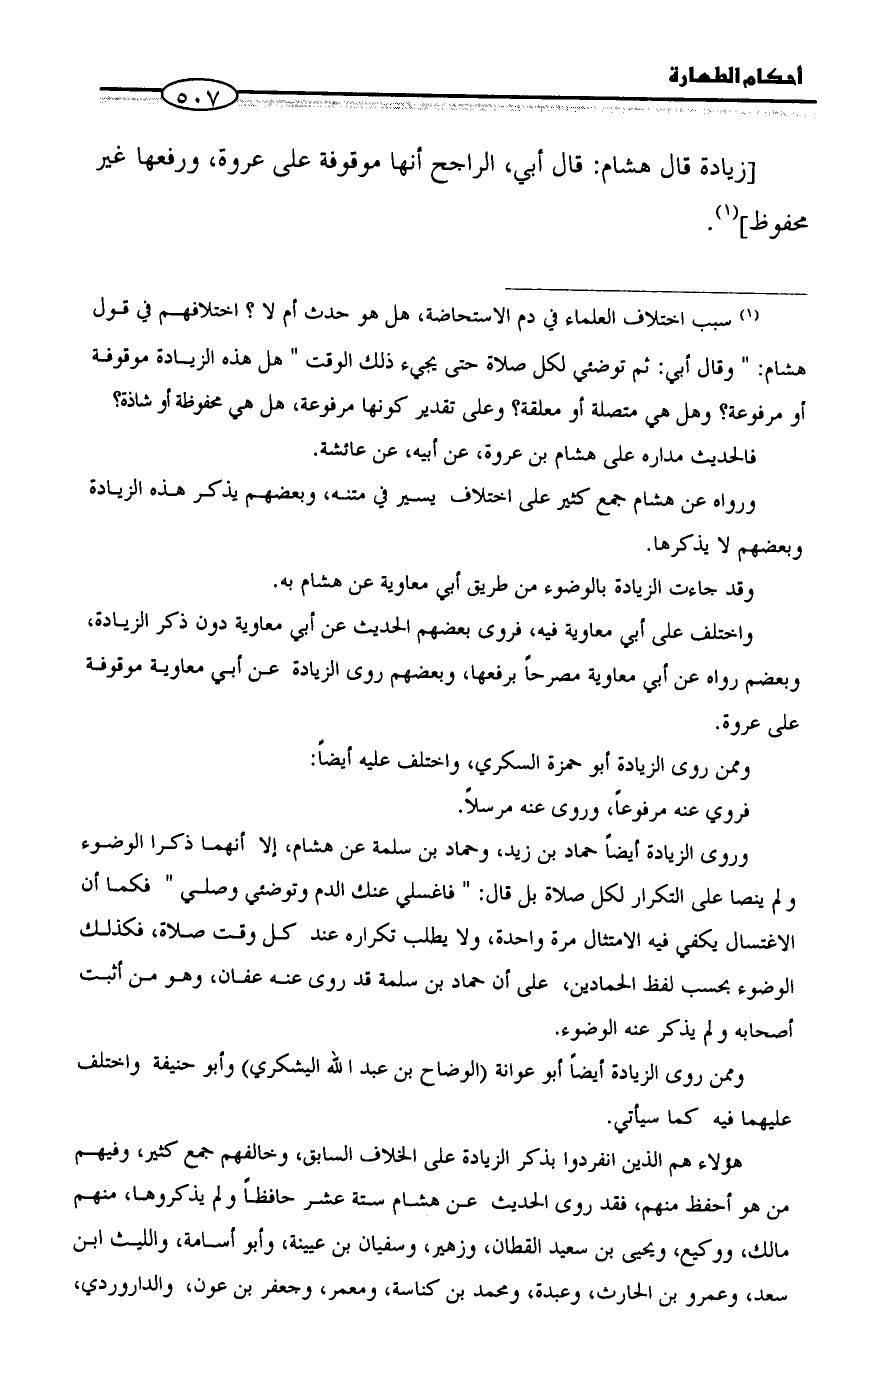 أحكام الطهارة
٥٠٧
[زيادة قال هشام: قال أبي، الراجح أنها موقوفة على عروة، ورفعها غير
محفوظ](١).
(١) سبب اختلاف العلماء في دم الاستحاضة، هل هو حدث أم لا ؟ اختلافهم في قول
هشام: " وقال أبي: ثم توضئي لكل صلاة حتى يجيء ذلك الوقت " هل هذه الزيادة موقوفة
أو مرفوعة؟ وهل هي متصلة أو معلقة؟ وعلى تقدير كونها مرفوعة، هل هي محفوظة أو شاذة؟
فالحديث مداره على هشام بن عروة، عن أبيه، عن عائشة.
ورواه عن هشام جمع كثير على اختلاف يسير في متنه، وبعضهم يذكر هذه الزيادة
وبعضهم لا يذكرها.
وقد جاءت الزيادة بالوضوء من طريق أبي معاوية عن هشام به.
واختلف على أبي معاوية فيه، فروى بعضهم الحديث عن أبي معاوية دون ذكر الزيادة،
وبعضم رواه عن أبي معاوية مصرحاً برفعها، وبعضهم روى الزيادة عن أبي معاوية موقوفة
على عروة.
وممن روى الزيادة أبو حمزة السكري، واختلف عليه أيضاً:
فروي عنه مرفوعاً، وروى عنه مرسلاً.
وروى الزيادة أيضاً حماد بن زيد، وحماد بن سلمة عن هشام، إلا أنهما ذكرا الوضوء
ولم ينصا على التكرار لكل صلاة بل قال: " فاغسلي عنك الدم وتوضئي وصلي " فكما أن
الاغتسال يكفي فيه الامتثال مرة واحدة، ولا يطلب تكراره عند كل وقت صلاة، فكذلك
الوضوء بحسب لفظ الحمادين، على أن حماد بن سلمة قد روى عنه عفان، وهو من أثبت
أصحابه ولم يذكر عنه الوضوء.
وممن روى الزيادة أيضاً أبو عوانة (الوضاح بن عبد الله اليشكري) وأبو حنيفة واختلف
عليهما فيه كما سيأتي.
هؤلاء هم الذين انفردوا بذكر الزيادة على الخلاف السابق، وخالفهم جمع كثير، وفيهم
من هو أحفظ منهم، فقد روى الحديث عن هشام ستة عشر حافظاً ولم يذكروها، منهم
مالك، ووكيع، ويحيى بن سعيد القطان، وزهير، وسفيان بن عيينة، وأبو أسامة، والليث ابن
سعد، وعمرو بن الحارث، وعبدة، ومحمد بن كناسة، ومعمر، وجعفر بن عون، والداروردي،